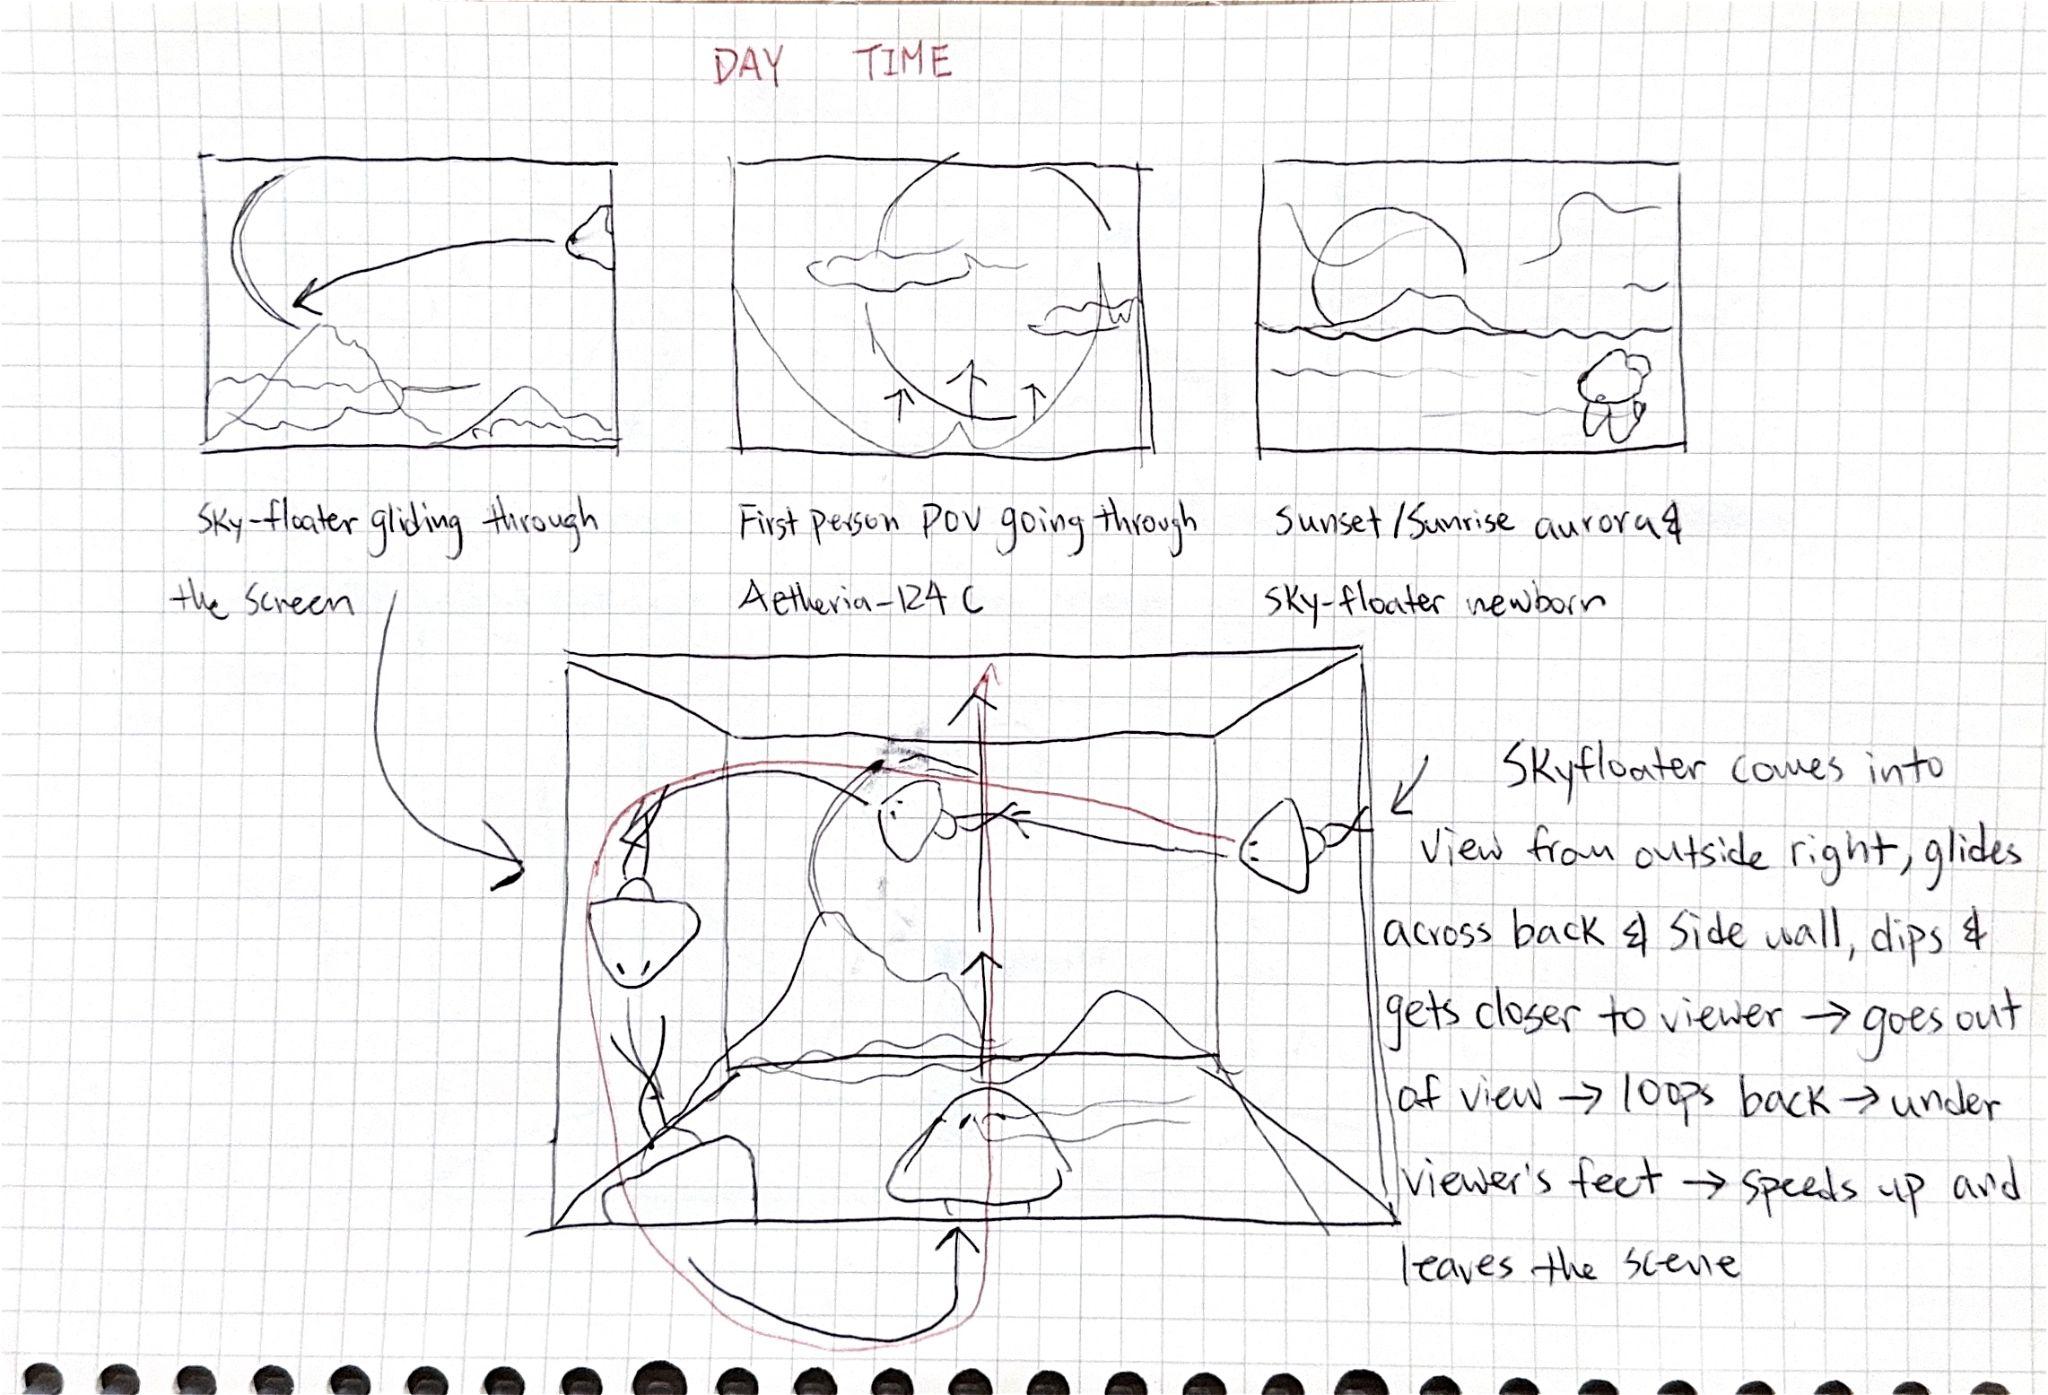 DAY TIME
Sky-floater gliding through
the screen
First person POV going through
Aetheria-124 C
Sunset/Sunrise aurora &
Sky-floater newborn
Skyfloater comes into
view from outside right, glides
across back & side wall, dips &
gets closer to viewer → goes out
of view → loops back → under
viewer's feet → speeds up and
leaves the scene